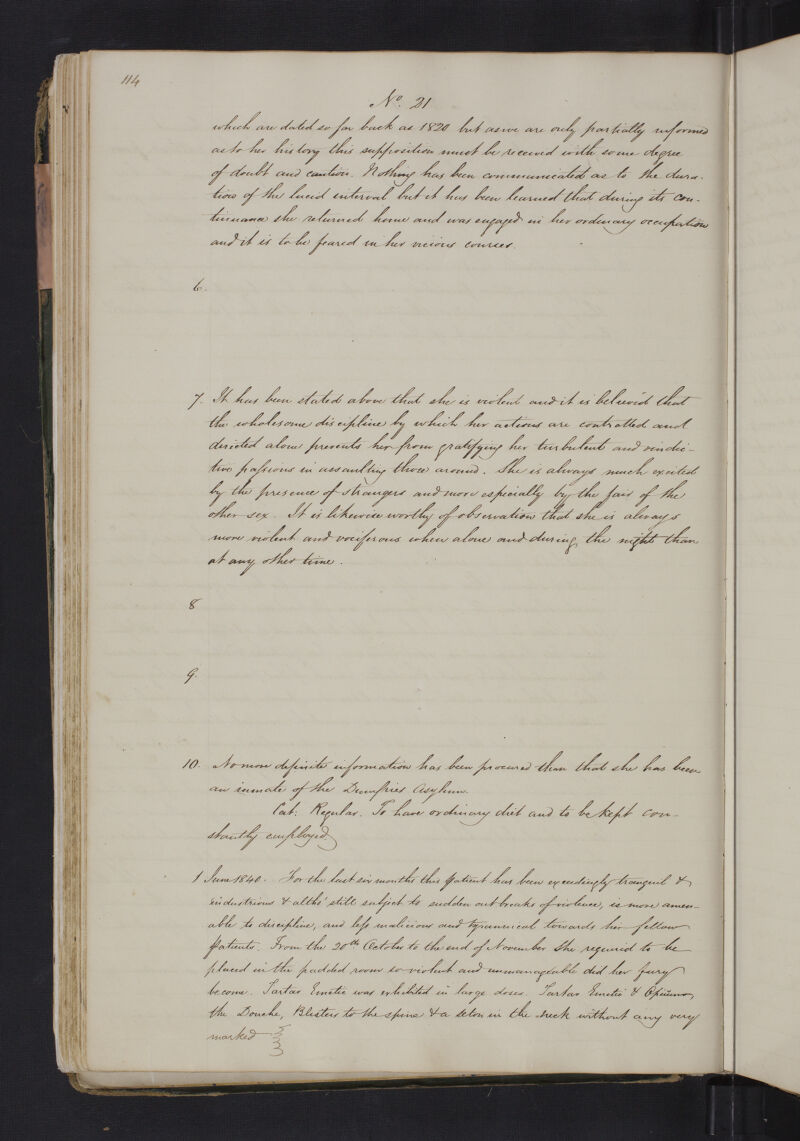 114
No. 21
which are dated so far back as 1820 but as we are only partially informed
as to her history this supposition must be received with some degree
of doubt and caution. Nothing has been communicated as to the dura-
tion of the lucid interval but it has been learned that during its con-
tinuance she returned home and was engaged in her ordinary occupation
and it is to be feared in her vicious courses.
6.
7. It has been stated above that she is violent and it is believed that
the wholesome discipline by which her actions are controlled and
directed alone prevents her from gratifying her turbulent and vindic-
tive passions in assaulting those around. She is always much excited
by the presence of strangers and more especially by the fair of the
other sex. It is likewise worthy of observation that she is always
more violent and vociferous when alone and during the night than
at any other time.
8
9.
10. No more definite information has been procured than that she has been
an inmate of the Dumfries Asylum.
Cat: Regular. To have ordinary diet and to be kept con-
stantly employed
1 June 1840. For the last six months this patient has been exceedingly tranquil &
industrious & altho' still subject to sudden outbreaks of violence, is more amen-
able to discipline, and less malicious and tyrannical towards her fellow
patients. From the 20th October to the end of November she required to be
placed in the padded room so violent and unmanageable did her fury
become. Tartar Emetic was exhibited in large doses. Tartar Emetic & Opium,
the Douche, Blisters to the spine & a seton in the neck without any very
marked